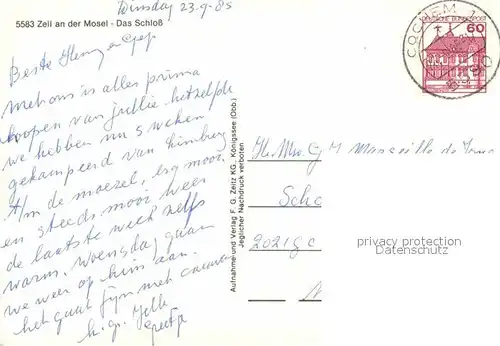 Dinsdag 23-9-85
5583 Zell an der Mosel - Das Schloß
Beste Henny en
Met ons is alles prima
hopen van jullie hetzelfde
we hebben nu 3 weken
gekampeerd van Limburg
t/m de moezel, erg mooi
en steeds mooi weer
de laatste week zelfs
warm, woensdag gaan
we weer op huis aan.
het gaat fijn met
h. g. Jelle
Greetje
COCHEM 1
DEUTSCHE BUNDESPOST
60
Aufnahme und Verlag F. G. Zeitz KG., Königssee (Obb.)
Jeglicher Nachdruck verboten
M de
Scho
2021 GC
privacy protection
Datenschutz